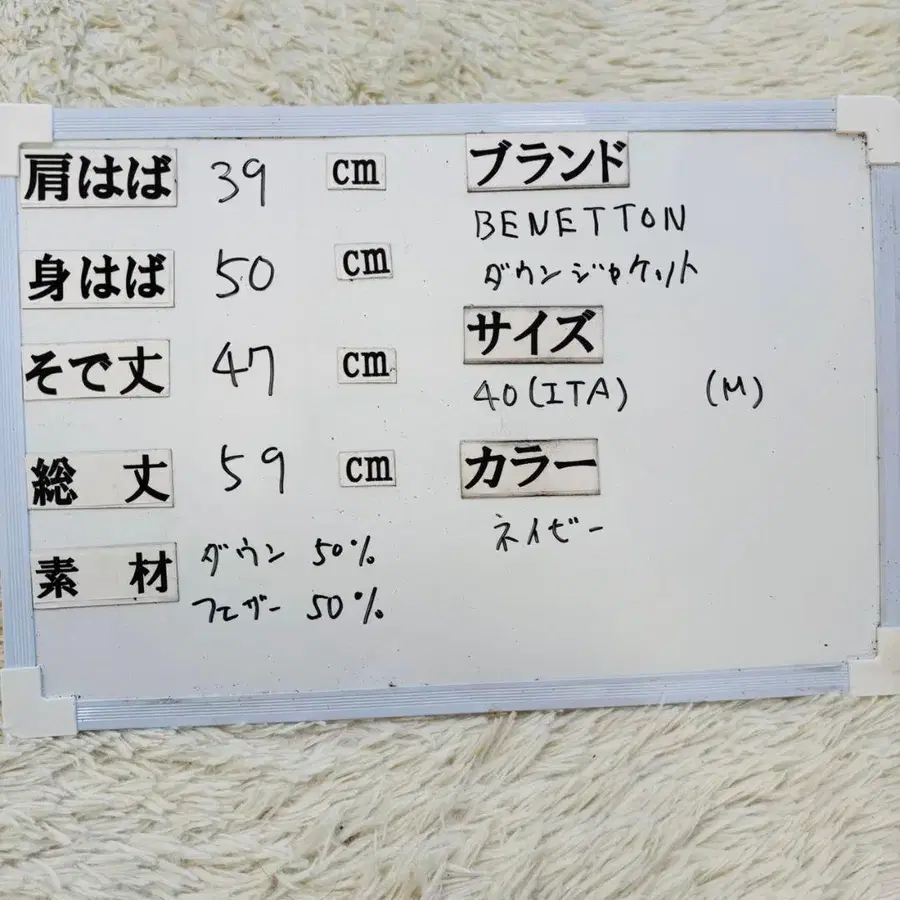 肩はば 39 cm
身はば 50 cm
そで丈 47 cm
総丈 59 cm
素材 ダウン 50%
フェザー 50%
ブランド
BENETTON
ダウンジャケット
サイズ
40(ITA) (M)
カラー
ネイビー